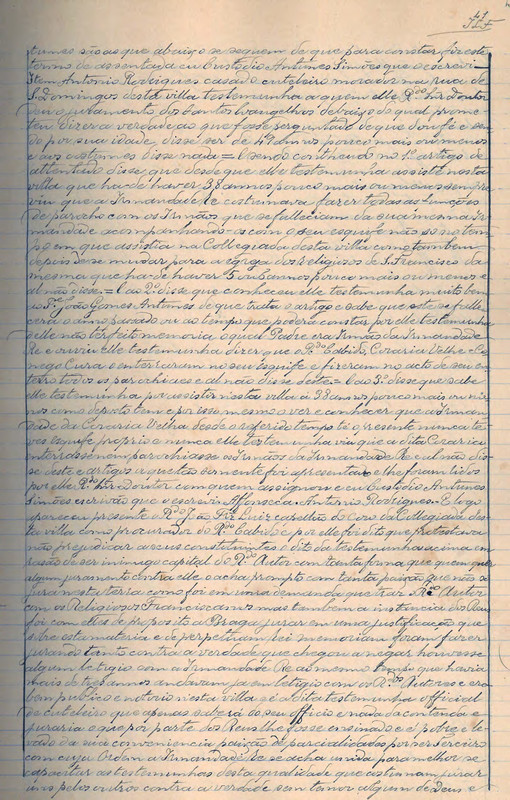 41
tumes são as que abaixo se seguem de que para constar, fiz este
termo de assentada eu Custodio Antunes Simões que o escrevi
Item Antonio Rodrigues casado cuteleiro morador na rua de
S. Domingos desta villa testemunha a quem elle Rdo Snr doutor
deu o juramento dos Santos Evangelhos debaixo do qual prome-
teu dizer a verdade ao que fosse perguntado de que dou fé e sen-
do por sua idade, disse ser de 49 annos pouco mais ou menos
e aos costumes disse nada = E sendo conteudo no 1º artigo de
attentado disse que desde que elle testemunha assiste nesta
villa que ha-de haver 38 annos pouco mais ou menos sempre
viu que a Irmandade Re costumava fazer todas as funcções
de parocho com os Irmãos que se falleciam da sua mesma Ir-
mandade acompanhando-os com o seu esquife não só no tem-
po em que assistia na Collegiada desta Villa como tambem
depois de se mudar para a Egreja dos religiosos de S. Francisco da
mesma que ha-de haver 5 ou 6 annos pouco mais ou menos e
al não disse = E ao 2º disse que conheceu elle testemunha muito bem
ao Pe João Gomes Antunes de que trata o artigo e sabe que este se falle-
cera o anno passado ou ao tempo que poderá constar por elle testemunha
d'elle não ter feito memoria o qual Padre era Irmão da Irmandade
Re e ouviu elle testemunha dizer que o Rdo Cabido, Coraria Velha e Co-
nego Cura o enterraram no seu Esquife e fizeram no acto de seu en-
terro todos os parochiaes e al não disse deste = E ao 3º disse que sabe
elle testemunha por assistir nesta villa á 38 annos pouco mais ou me-
nos como deposto tem e por isso mesmo o ver e conhecer que a Irman-
dade da Coraria Velha desde o referido tempo té o presente nunca te-
ve Esquife proprio e nunca elle testemunha viu que a dita Coraria
enterrasse nem parochiasse os Irmãos da Irmandade Re e al não dis-
se deste e artigos a que tão sómente foi apresentado e lhe foram lidos
por elle Rdo Snr Doutor com quem assignou e eu Custodio Antunes
Simões escrivão que o escrevi = Affonseca = Antonio Rodrigues. E logo
appareceu presente o Rdo João Fiz Luiz capellão do Coro da Collegiada des-
ta villa como procurador do Rdo Cabido e por elle foi dito que protestava
não prejudicar a seus constituintes o dito da testemunha acima em
rasão de ser inimigo capital do Rdo Autor com tanta forma que quem quer
algum juramento contra elle o acha prompto com tanta paixão que não só
jura nesta materia como foi em uma demanda que traz o Rdo Autor
com os Religiosos Franciscanos mas tambem a instancia dos Reus
foi com elles de proposito a Braga jurar em uma justificação que
sobre esta materia e de perpetuam rei memoriam foram fazer
jurando tanto contra a verdade que chegou a negar houvesse
algum letigio com a Irmandade Re ao mesmo tempo que havia
mais de tres annos andavam já em letigio com os Rdos Autores e era
bem publico e notorio nesta villa e é a dita testemunha official
de cuteleiro que apenas saberá do seu officio e nada da contenda e
juraria o que por parte dos Reus lhe fosse ensinado e é pobre le-
vado da sua conveniencia paixão e parcialidades por ser Terceiro
com cuja Ordem a Irmandade Re se acha unida para melhor se
capacitar as testemunhas desta qualidade que costumam jurar
uns pelos outros contra a verdade sem temor algum de deus e